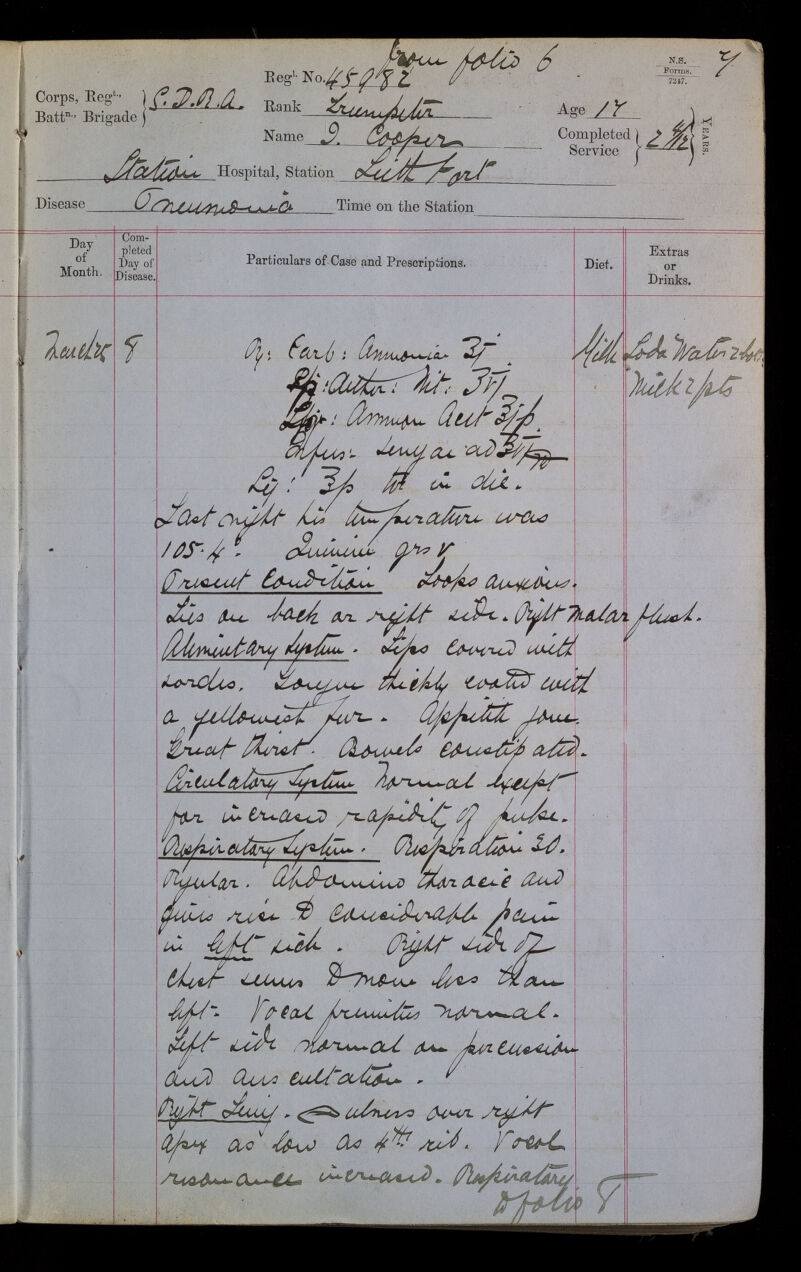 from folio 6
7
N.S.
Forms.
7247.
Regt. No. 45982
Corps, Regt.,
Battn., Brigade } S.D.R.A.
Rank Trumpeter
Age 17
Name J. Cooper
Completed
Service } 2 YEARS.
Station Hospital, Station Leith Fort
Disease Pneumonia Time on the Station
Day of Month.
Completed Day of Disease.
Particulars of Case and Prescriptions.
Diet.
Extras or Drinks.
March 25 8 Rx: Carb: Ammonia ʒj Milk Soda Water 2 bots
: Aether: Nit: ʒvj Milk 2 pts
: Ammon Acet
Infus: Senegae ad
in die.
Last night his temperature was
105.4°. Quinine grs v
Present Condition Looks anxious.
Lies on back or right side. Right malar flush.
Alimentary System. Lips covered with
sordes. Tongue thickly coated with
a yellowish fur. Appetite gone.
Great thirst. Bowels constipated.
Circulatory System Normal except
for increased rapidity of pulse.
Respiratory System. Respiration 30.
Regular. Abdomino thoracic and
gives rise to considerable pain
in left side. Right side of
chest seems to move less than
left. Vocal fremitus normal.
Left side normal on percussion
and auscultation.
Right Lung. Dulness over right
apex as low as 4th rib. Vocal
resonance increased. Respiratory
to folio 8